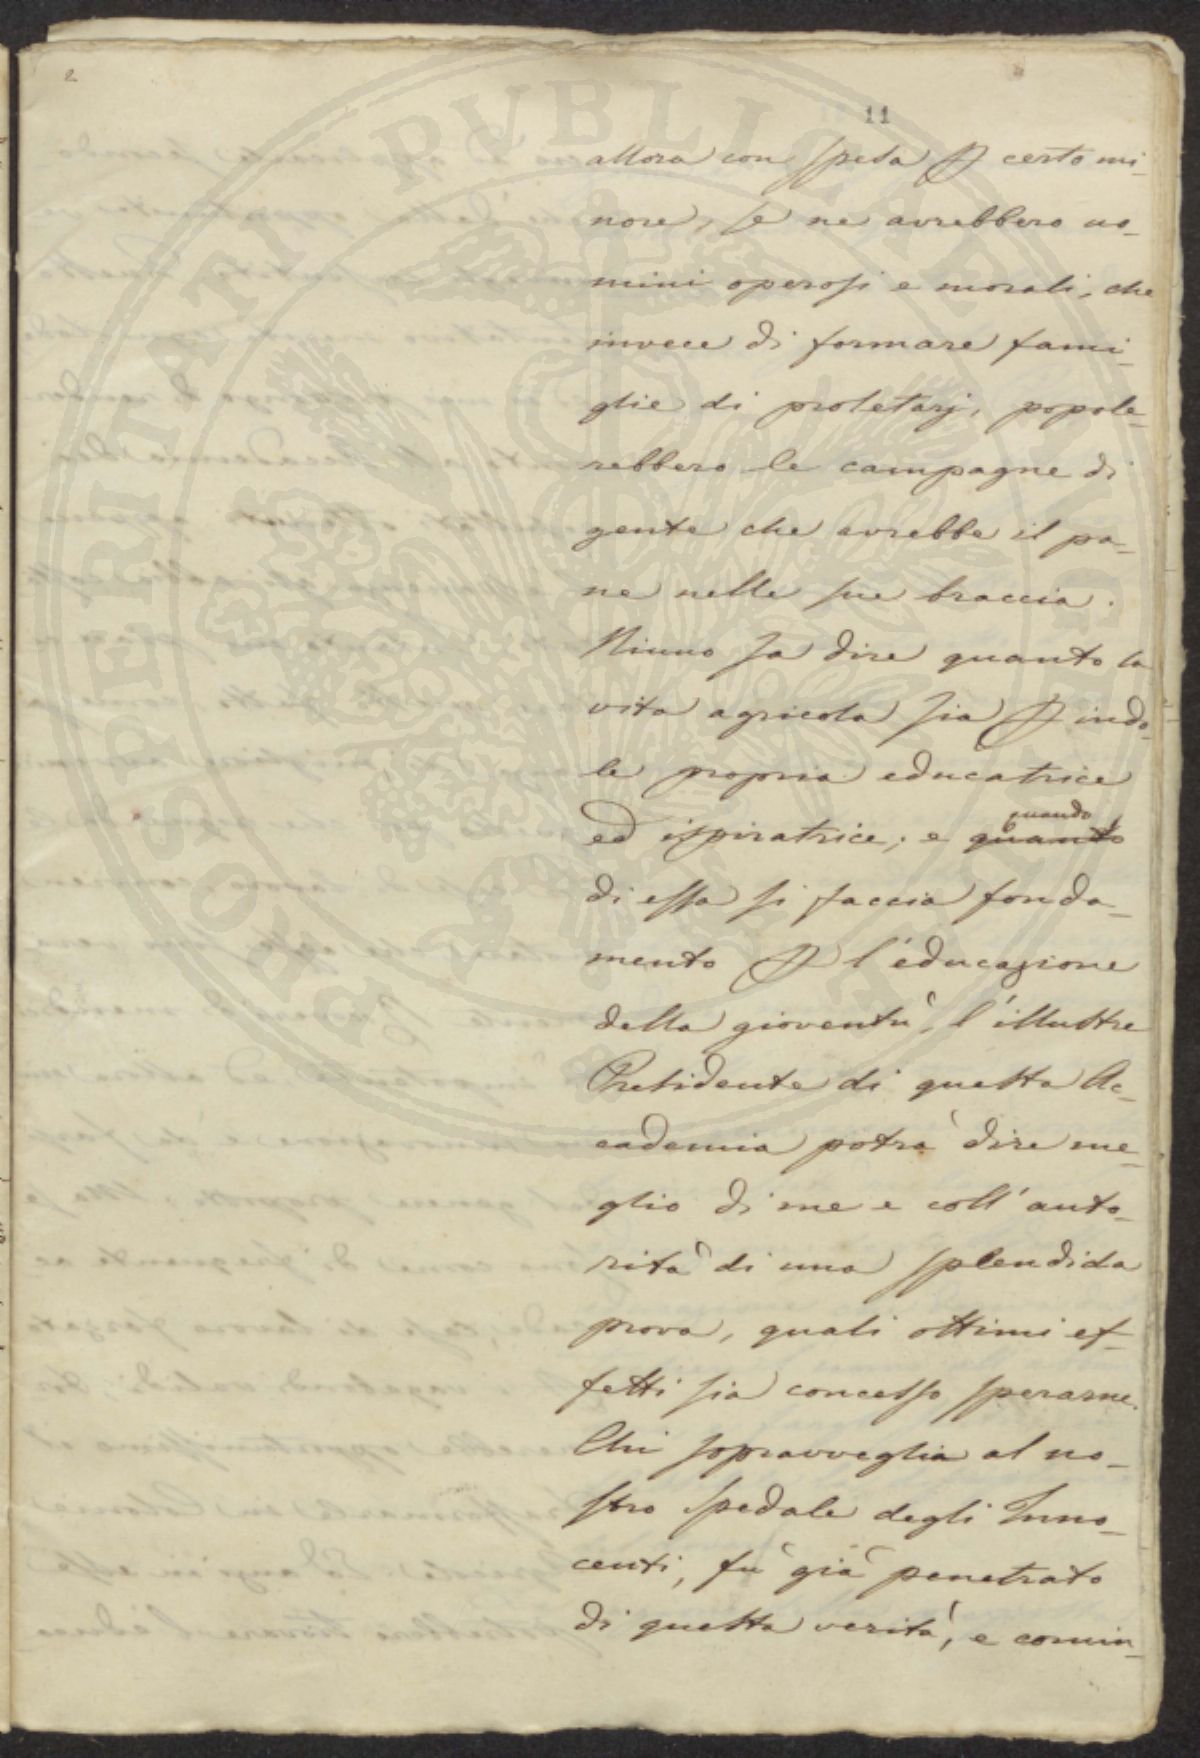 2
11
PROSPERITATI PUBLICAE AUGENDAE
allora con spesa P certo mi-
nore, se ne avrebbero uo-
mini operosi e morali, che
invece di formare fami-
glie di proletarj, popole-
rebbero le campagne di
gente che avrebbe il pa-
ne nelle sue braccia.
Niuno sa dire quanto la
vita agricola sia P indo-
le propria educatrice
quando
ed ispiratrice; e quanto
di essa si faccia fonda-
mento P l'educazione
della gioventù, l'illustre
Presidente di questa Ac-
cademia potrà dire me-
glio di me e coll'auto-
rità di una splendida
prova, quali ottimi ef-
fetti sia concesso sperarne.
Chi sopravveglia al no-
stro spedale degli Inno-
centi, fù già penetrato
di questa verità, e comin-